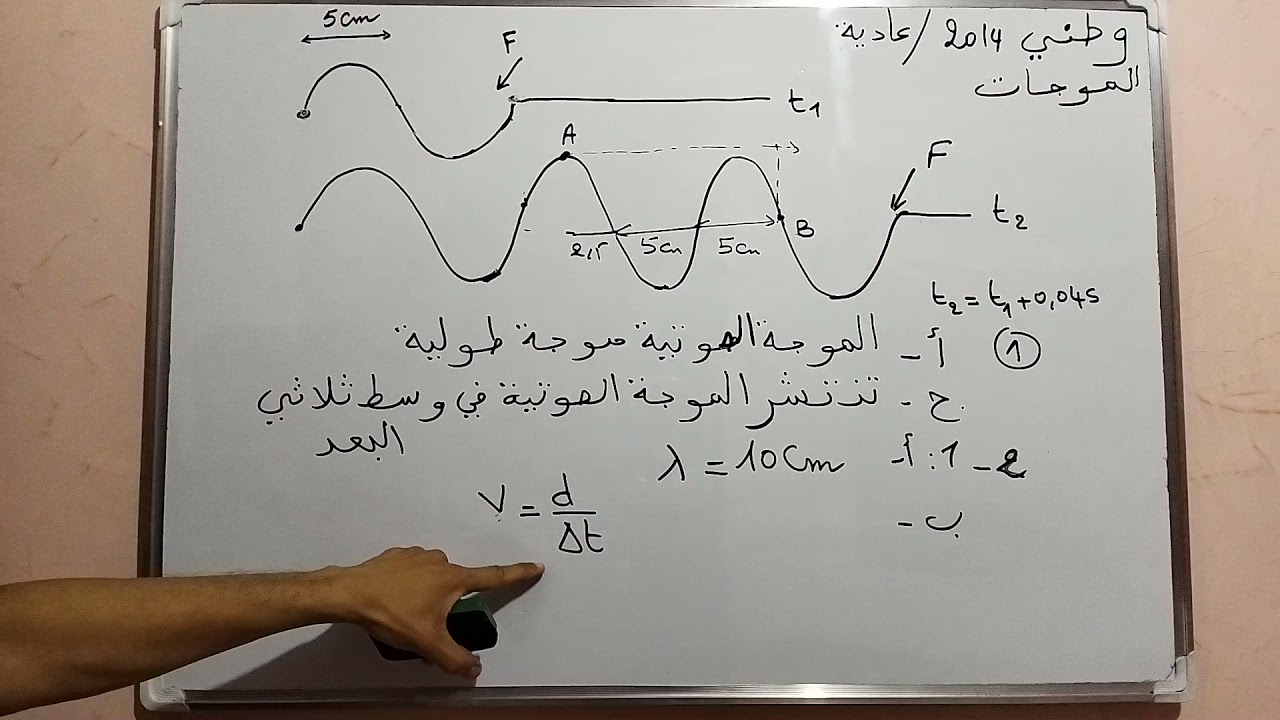 وطني 2014/عادية
الموجات
5cm
F
t1
A
B
2,5
5cm
5cm
F
t2
t2 = t1 + 0,04s
1 أ- الموجة الصوتية موجة طولية
ج- تنتشر الموجة الصوتية في وسط ثلاثي
البعد
2- 1: أ- λ = 10cm
ب- V = d/Δt